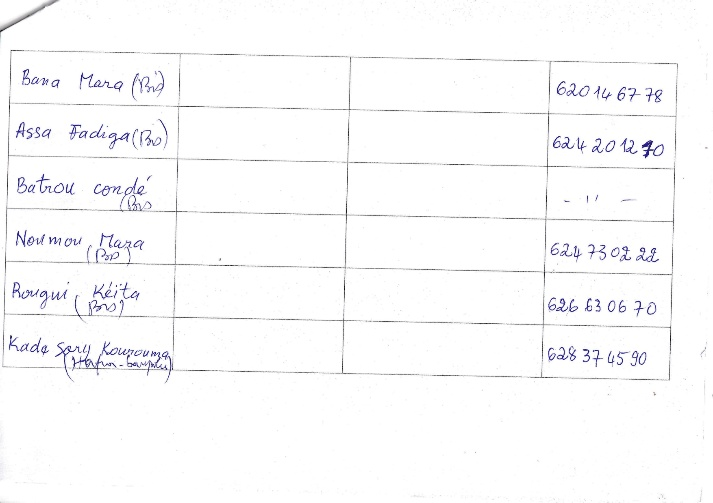 Bana Mara (Bio) 62014 67 78
Assa Fadiga (Bio) 624 20 12 70
Batrou condé - " -
(Bio
Noumou Mara 624 73 02 22
(Bio)
Rougui Kéita 626 63 06 70
(Bio)
Kade Sory Kourouma 628 37 45 90